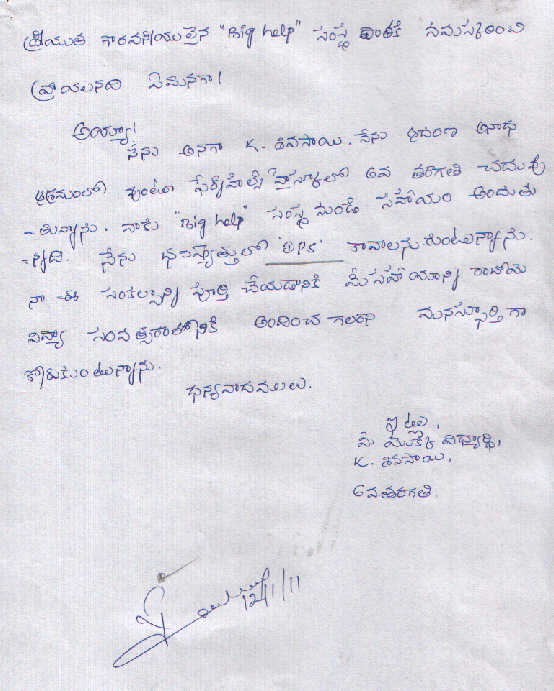 శ్రీయుత గౌరవనీయులైన "Big help" సంస్థ వారికి నమస్కరించి
వ్రాయునది ఏమనగా!
అయ్యా!
నేను అనగా K. శివసాయి. నేను శరణ అనాధ
ఆశ్రమంలో వుంటూ హైస్కూల్లో 6వ తరగతి చదువు
-తున్నాను. నాకు "Big help" సంస్థ నుండి సహాయం అందుతు
-న్నది. నేను భవిష్యత్తులో "IPS" కావాలనుకుంటున్నాను.
నా ఈ సంకల్పాన్ని పూర్తి చేయడానికి మీ సహాయాన్ని రాబోయే
విద్యా సంవత్సరానికి అందించ గలరని మనస్ఫూర్తిగా
కోరుకుంటున్నాను.
ధన్యవాదములు.
ఇట్లు,
మీ విద్యార్థి,
K. శివసాయి,
6వ తరగతి.
12/1/11